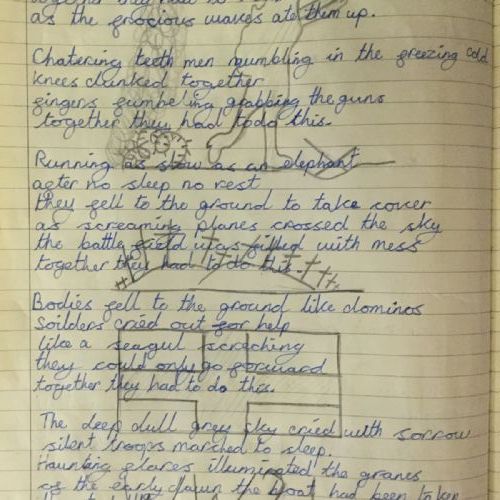 together they had to
as the frocious waves ate them up.
Chatering teeth men mumbling in the freezing cold
knees clunked together
fingers fumbeling grabbing the guns
together they had to do this.
Running as slow as an elephant
after no sleep no rest
they fell to the ground to take cover
as screaming planes crossed the sky
the battle field was filled with mess
together they had to do this.
Bodies fell to the ground like dominos
Soilders cried out for help
like a seagul screching
they could only go forward
together they had to do this.
The deep dull grey sky cried with sorrow
silent troops marched to sleep.
Haunting flares illuminated the graves
as the early dawn the boat had been taken